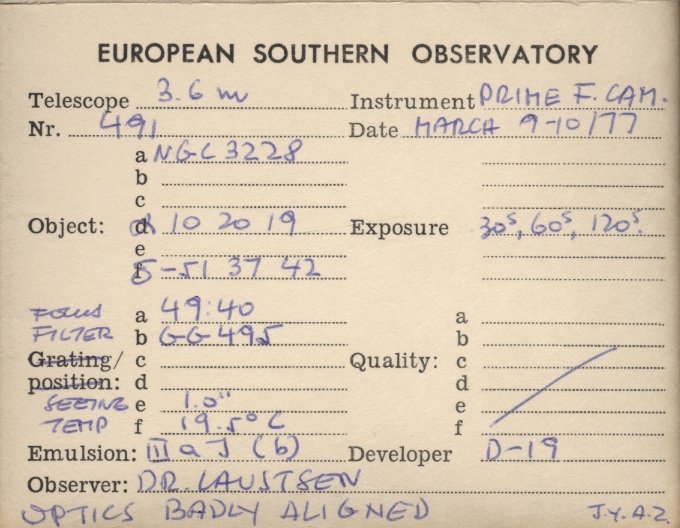 EUROPEAN SOUTHERN OBSERVATORY
Telescope 3.6 m Instrument PRIME F. CAM.
Nr. 491 Date MARCH 9-10/77
a NGC 3228
b
c
Object: d α 10 20 19 Exposure 30s, 60s, 120s.
e
f δ -51 37 42
FOCUS a 49:40 a
FILTER b GG 495 b
Grating/ c Quality: c
position: d d
SEEING e 1.0" e
TEMP f 19.5°C f
Emulsion: III a J (b) Developer D-19
Observer: DR. LAUSTSEN
OPTICS BADLY ALIGNED J.Y.A.Z.